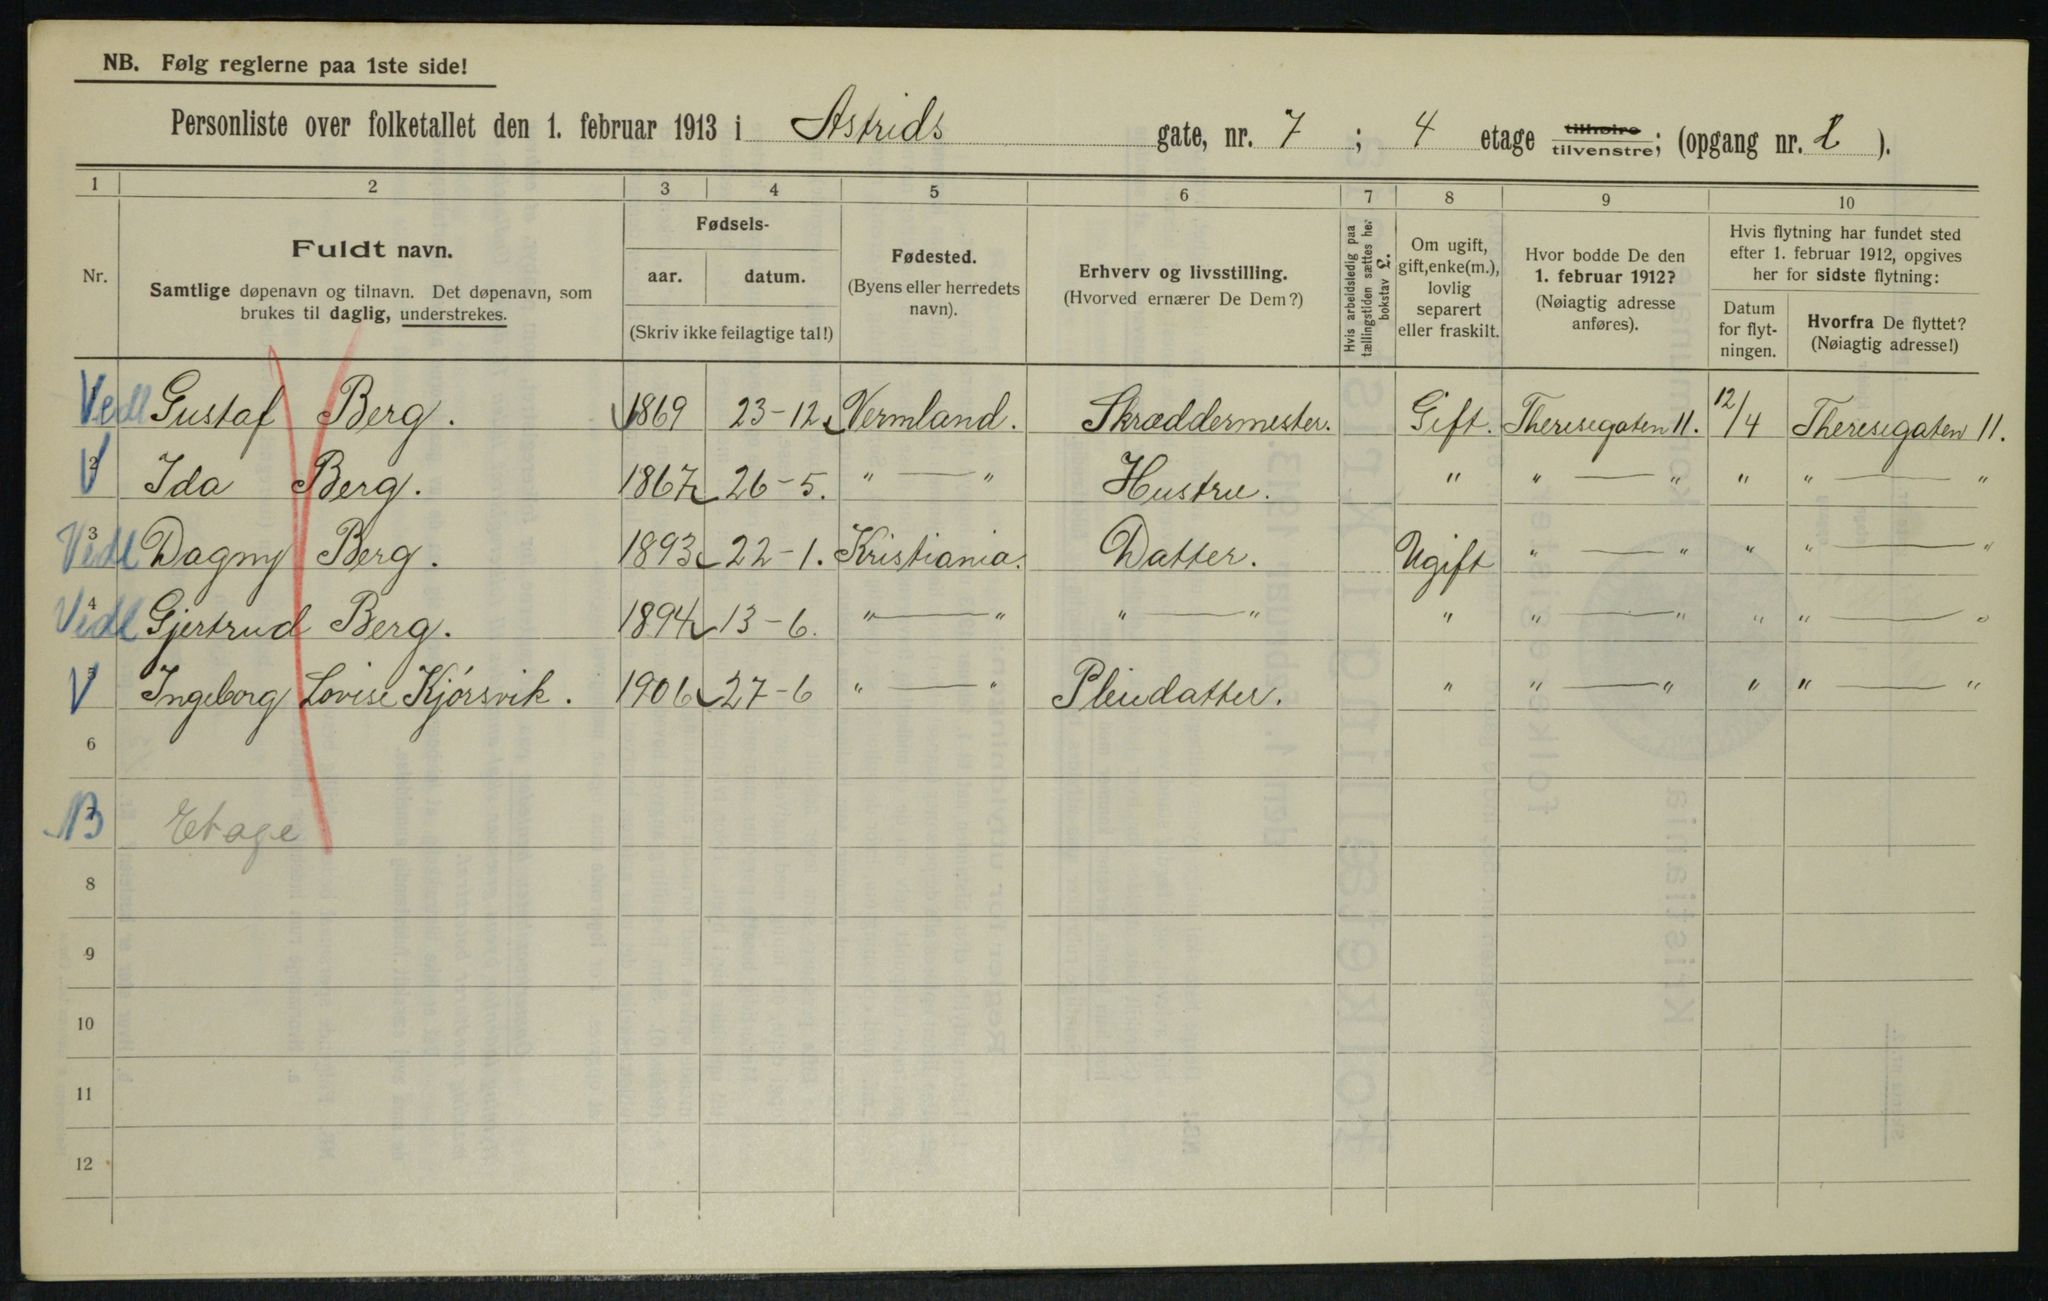 NB. Følg reglerne paa 1ste side!
Personliste over folketallet den 1. februar 1913 i Astrids gate, nr. 7 ; 4 etage tilhøire tilvenstre; (opgang nr. ).
1 2 3 4 5 6 7 8 9 10
Nr.
Fuldt navn.
Samtlige døpenavn og tilnavn. Det døpenavn, som
brukes til daglig, understrekes.
Fødsels-
aar. datum.
(Skriv ikke feilagtige tal!)
Fødested.
(Byens eller herredets
navn).
Erhverv og livsstilling.
(Hvorved ernærer De Dem?)
Hvis arbeidsledig paa
tællingstiden sættes her
bokstav L.
Om ugift,
gift, enke(m.),
lovlig
separert
eller fraskilt.
Hvor bodde De den
1. februar 1912?
(Nøiagtig adresse
anføres).
Hvis flytning har fundet sted
efter 1. februar 1912, opgives
her for sidste flytning:
Datum
for flyt-
ningen.
Hvorfra De flyttet?
(Nøiagtig adresse!)
Vedl Gustaf Berg. 1869 23-12 Vermland. Skræddermester. Gift. Theresegaten 11. 12/4 Theresegaten 11.
V 2 Ida Berg. 1867 26-5. " — " Hustru. " " — " " " — "
Vedl 3 Dagny Berg. 1893 22-1. Kristiania. Datter. Ugift " — " " " — "
Vedl 4 Gjertrud Berg. 1894 13-6. " — " " — " " " — " " " — "
V 5 Ingeborg Lovise Kjórsvik. 1906 27-6 " — " Pleiedatter. " " — " " " — "
6
B 7 Etage
8
9
10
11
12